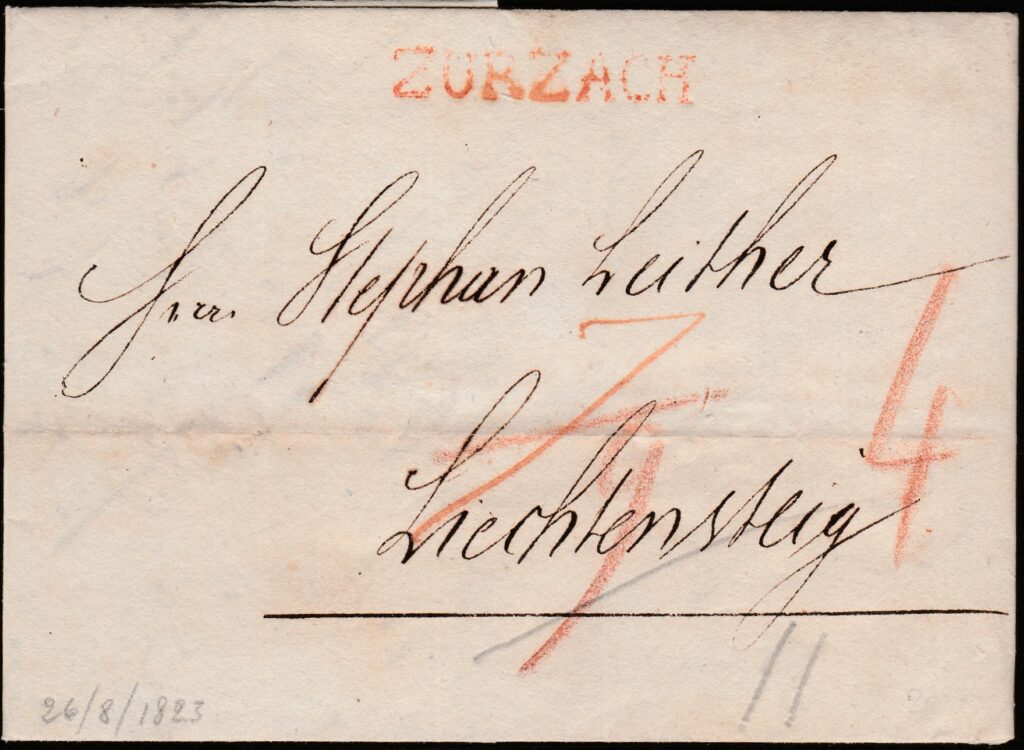 ZURZACH
Herr. Stephan Leither
4
7
9
Liechtensteig
11
26/8/1823